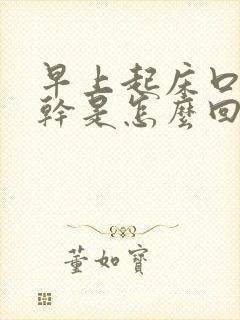 早上起床口
幹是怎麼回
董如寶